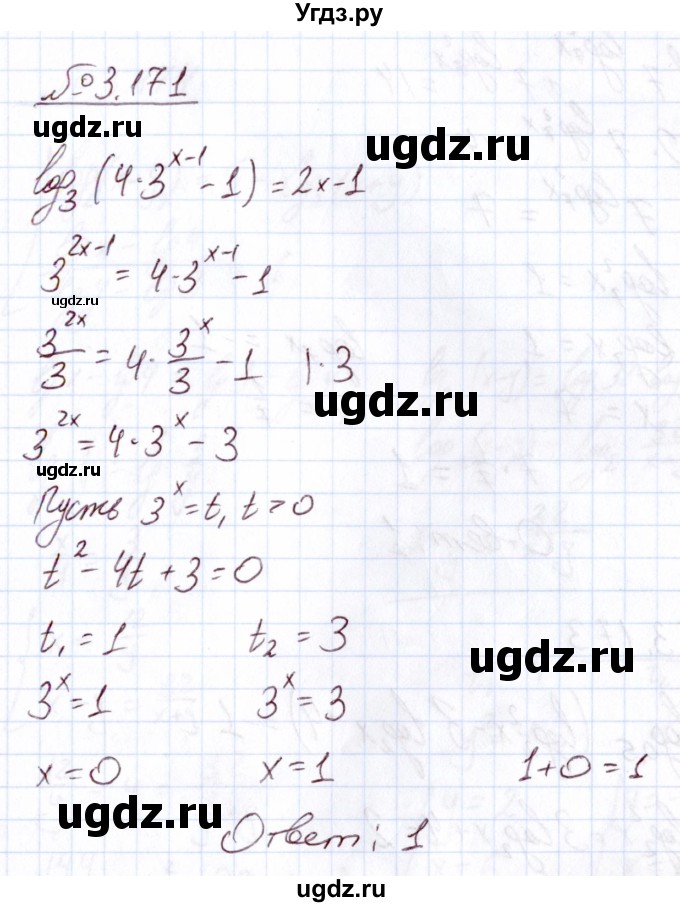 Угдз.ру
№3.171
ugdz.ru ugdz.ru
log₃(4·3^(x-1) - 1) = 2x-1
3^(2x-1) = 4·3^(x-1) - 1
ugdz.ru
3^(2x)/3 = 4·3^x/3 - 1 |·3
ugdz.ru
3^(2x) = 4·3^x - 3
ugdz.ru
Пусть 3^x = t, t > 0
t² - 4t + 3 = 0
t₁ = 1 t₂ = 3
ugdz.ru
3^x = 1 3^x = 3
x = 0 x = 1 1+0=1
ugdz.ru
Ответ: 1
ugdz.ru